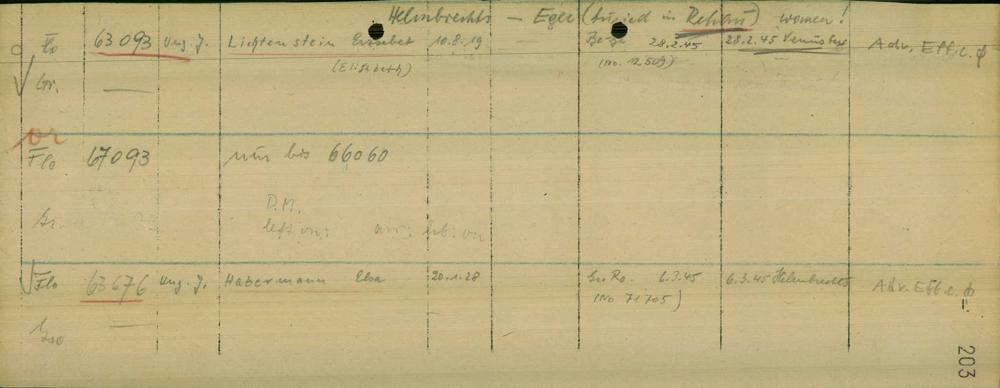 Helmbrechts – Eger (buried in Rehau) women!
Flo 63093 Ung. J. Lichtenstein Erzsebet 10.8.19 28.2.45 28.2.45 Adv. Eff.c. ϕ
(Elisabeth) (No. 12509)
Gr. —
or
Flo 67093 nur bis 66060
Gr. D.M.
left on: arr:
Flo 63676 Ung. J. Habermann Elsa 20.1.28 Gr. Ro. 6.3.45 6.3.45 Helmbrechts Adv. Eff.c. ϕ
(No 71705)
—
203